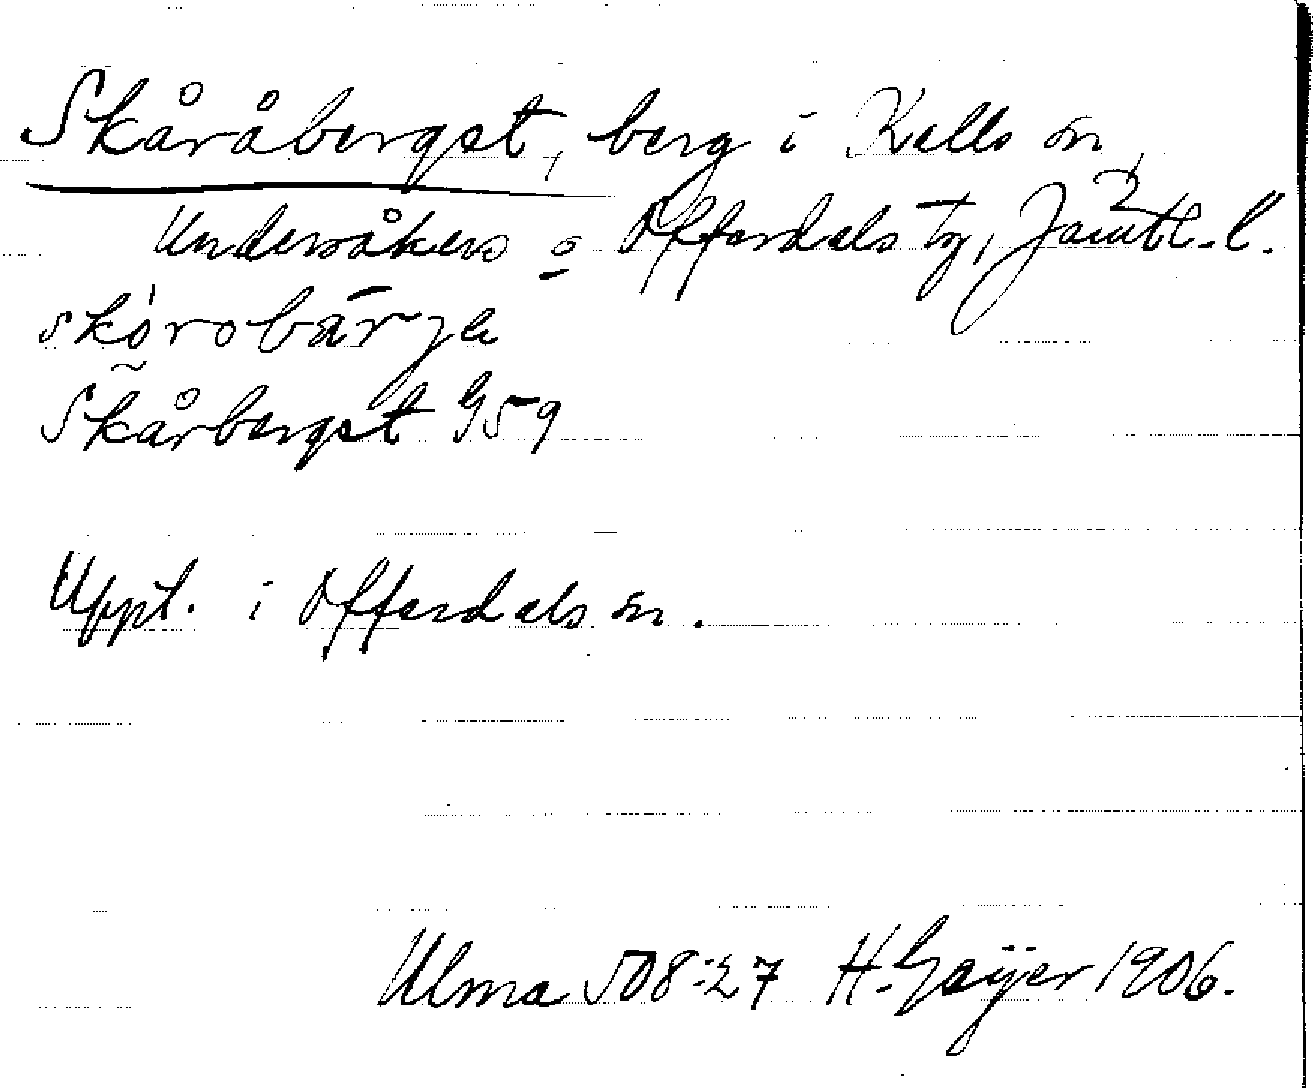 Skåråberget, berg i Kalls sn,
Undersåkers o Offerdals tg, Jämtl. l.
skórobār̄ja
Skårberget G59
Uppt. i Offerdals sn.
Ulma 508:27 H. Geijer 1906.